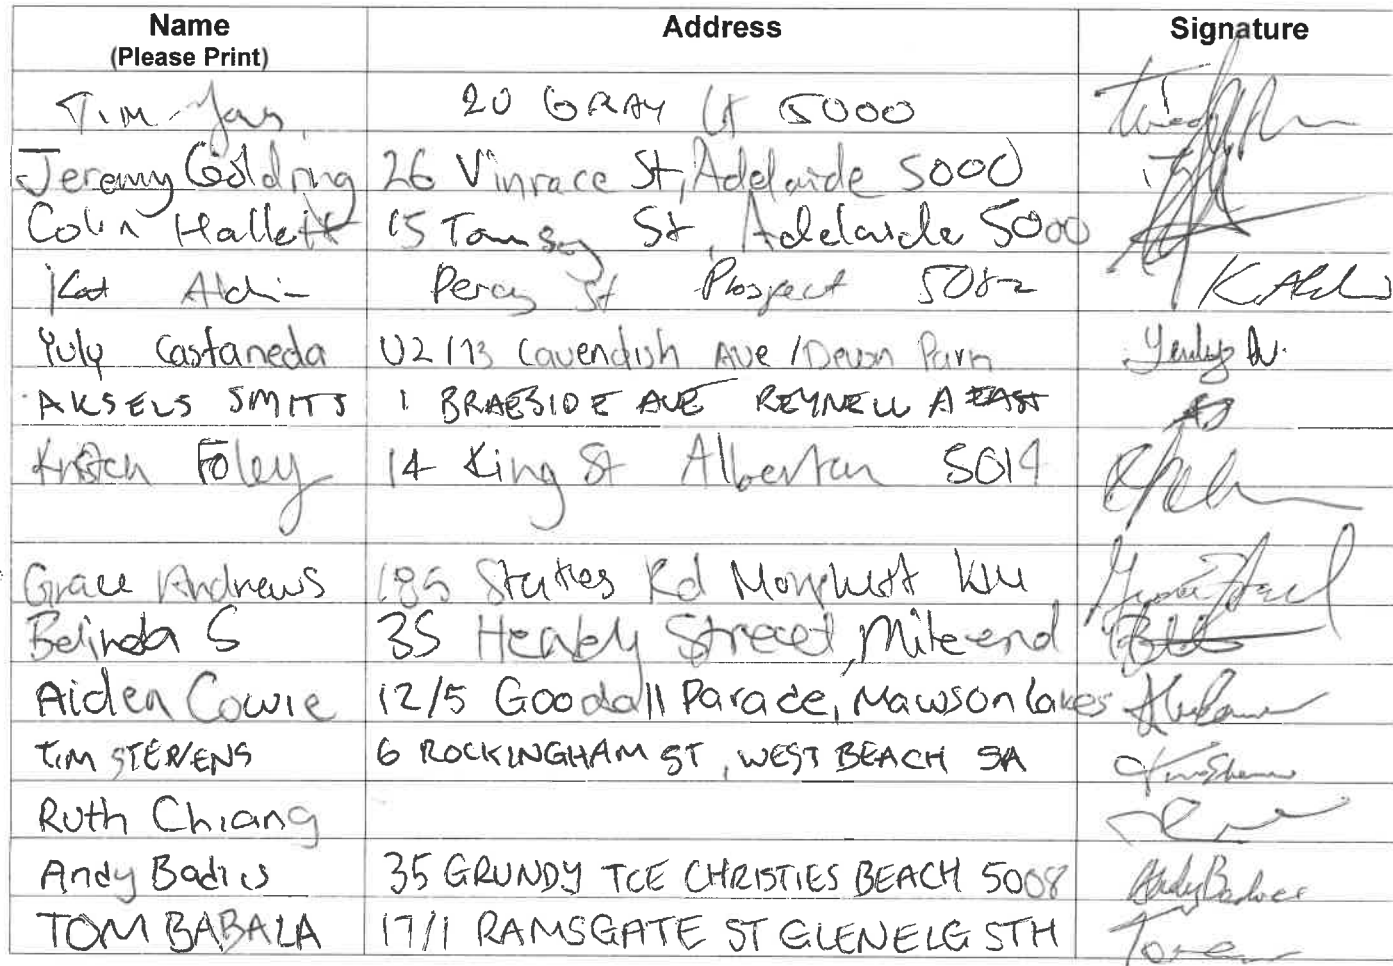 Name Address Signature
(Please Print)
Tim 20 GRAY 5000
Jeremy Goldring 26 Vinrace St, Adelaide 5000
Colin Hallett 15 St, Adelaide 5000
Kat Percy St Prospect 5082 K.
Yuly Castaneda U2/173 Cavendish Ave / Devon Park Yenly
AKSELS SMITS 1 BRAESIDE AVE REYNELLA EAST
Foley 14 King St Alberton 5014
Grace Andrews 185 Rd
Belinda S 35 Henley Street, Mile end
Aiden Cowie 12/5 Goodall Parade, Mawson lakes
TIM STEVENS 6 ROCKINGHAM ST, WEST BEACH SA
Ruth Chiang
Andy 35 GRUNDY TCE CHRISTIES BEACH 5008 Andy
TOM BABALA 17/1 RAMSGATE ST GLENELG STH